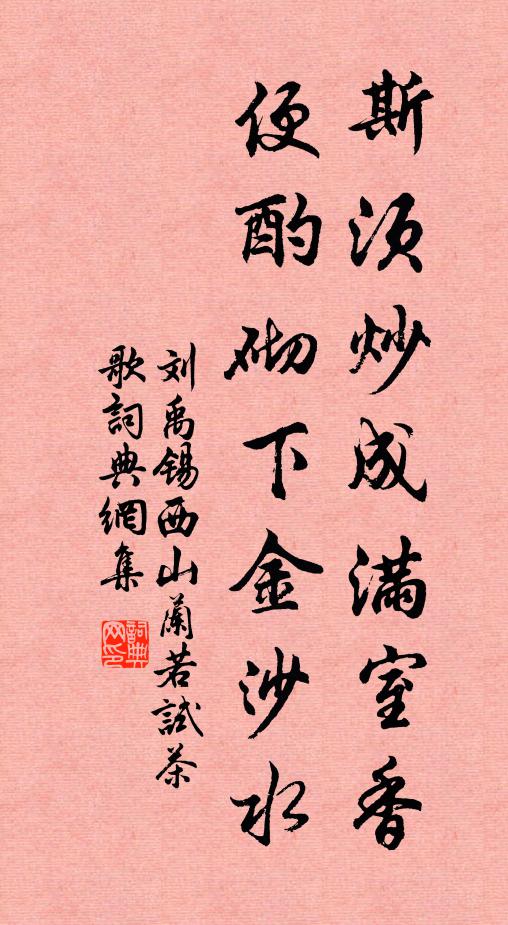 斯须炒成满室香
便酌砌下金沙水
刘禹锡西山蘭若試茶
歌詞典網集
詞典网印